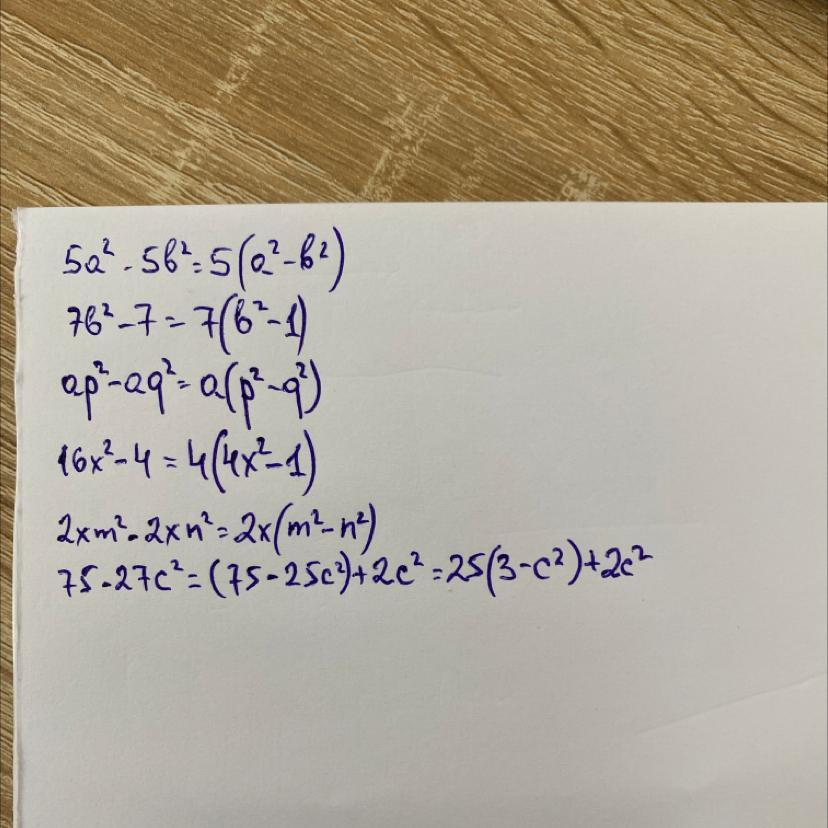 5a² - 5b² = 5(a² - b²)
7b² - 7 = 7(b² - 1)
ap² - aq² = a(p² - q²)
16x² - 4 = 4(4x² - 1)
2xm² - 2xn² = 2x(m² - n²)
75 - 27c² = (75 - 25c²) + 2c² = 25(3 - c²) + 2c²